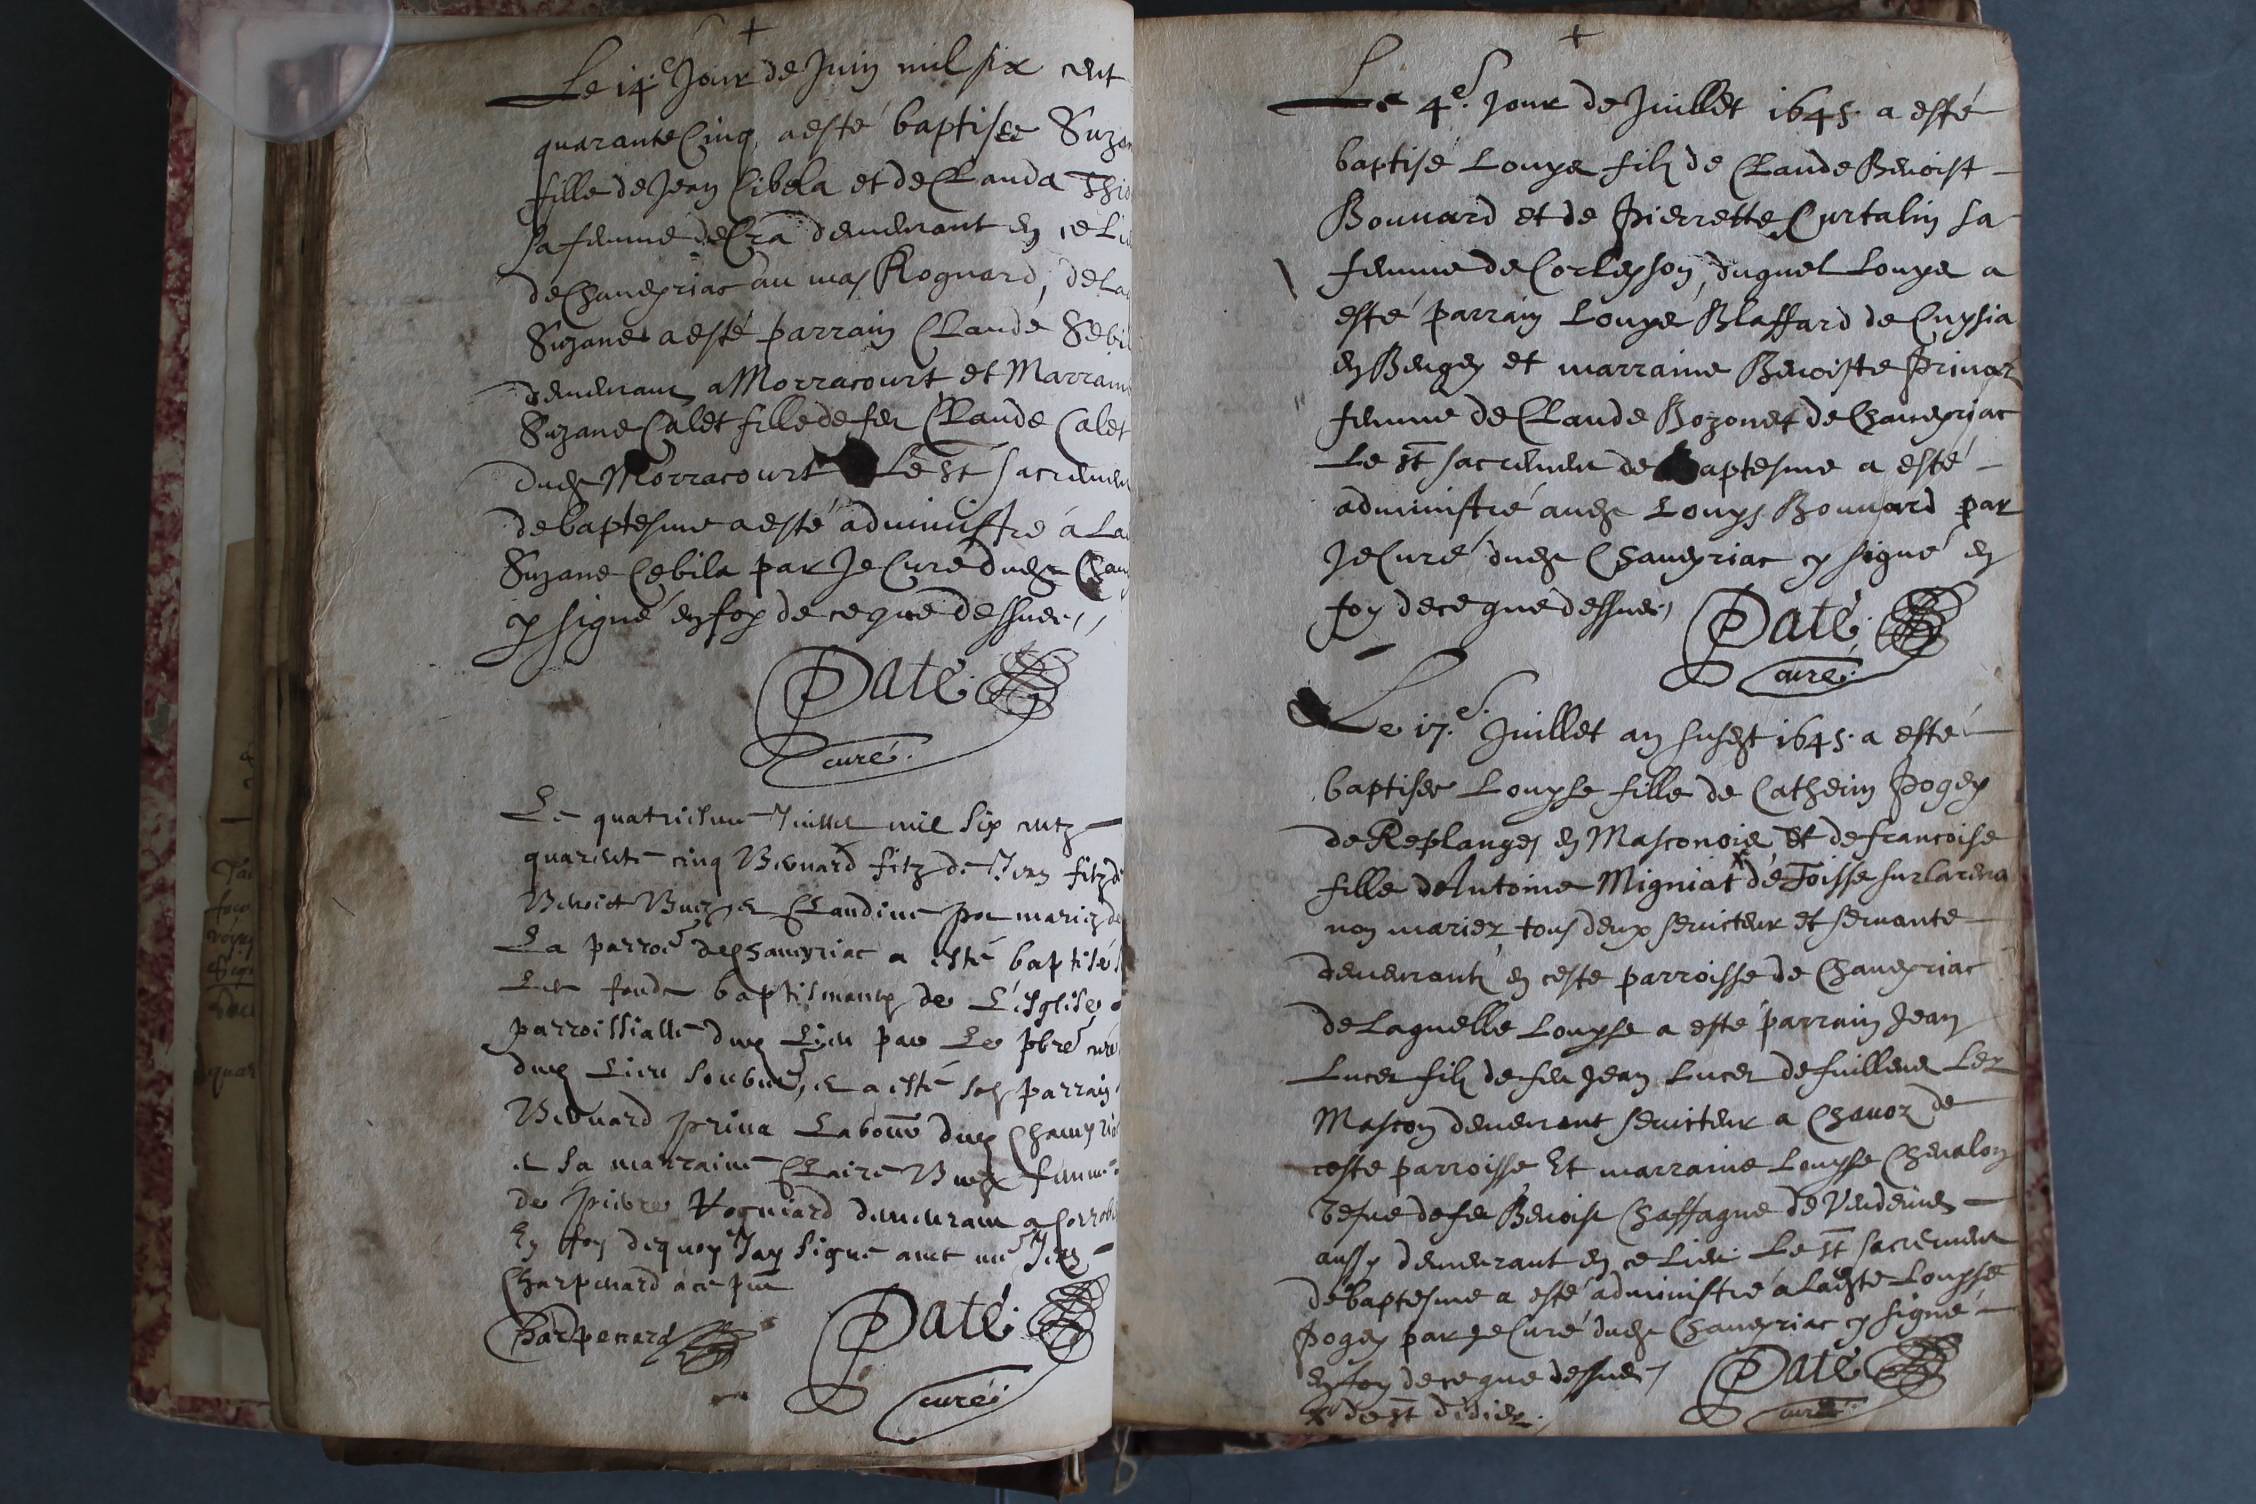 Le 14.e Jour de Juin mil six cent
quarante Cinq, a esté baptisee Suzan
fille de Jean Cibela et de Clauda
sa femme de Cra demeurant en ce Lie
de Chaueyriac au mas Rognard, de La
Suzane a esté parrain Claude Sebil
demeurant a Morracourt et Marraine
Suzane Calet fille de feu Claude Calet
dudt Morracourt Le st sacremen
de baptesme a esté administré a La
Suzane Cebila par Je Curé dudt Chau
cy signé en foy de ce que dessues,
Paté
curé.
Le quatriesme Juillet mil six centz
quarente cinq Bernard fitz de Jean fitz de
Benoict et Claudine mariez de
La parroe de Chaueyriac a esté baptisé
Les fondz baptismaux de L'esglise
parroissialle dud Lieu par Le pbre curé
dud Lieu soubne, et a esté son parrain
Bernard priua Labour dud Chaueyria
et sa marraine Claire femme
de pierre Rogniard demeurant a
En foy dequoy Jay signé auec me Jean
Charpenard a ce pnt
Charpenard
Paté.
curé.
Le 4.e Jour de Juillet 1645 a esté
baptisé Louys filz de Claude Benoist
Bouuard et de Pierrette Curtalin sa
femme de Corleyson, duquel Louys a
esté parrain Louys Blaffard de Cuysia
en Beugey et marraine Benoiste Priuaz
femme de Claude Bozonet de Chaueyriac
Le st sacrement de baptesme a esté
administré audt Louys Bouuard par
Je Curé dudt Chaueyriac cy signé en
foy de ce que dessues,
Paté.
curé.
Le 17.e Juillet an susdt 1645. a esté
baptisee Louyse fille de Catherin Pogey
de Replanges en Masconois Et de francoise
fille dAntoine Migniat x de Toisse sur
non mariez tous deux seruiteur et seruante
demeurantz en ceste parroisse de Chaueyriac
de Laquelle Louyse a esté parrain Jean
Lucet filz de feu Jean Lucet de Lez
Mascon demeurant seruiteur a Chauoz de
ceste parroisse Et marraine Louyse Cheualon
vesue de feu Benoist Chaffagne de Vendeins
aussy demeurant en ce Lieu. Le st sacrement
de baptesme a esté administré a Ladte Louyse
Pogey par Je Curé dudt Chaueyriac cy signé
en foy de ce que dessues
Paté
curé.
x de st didier.